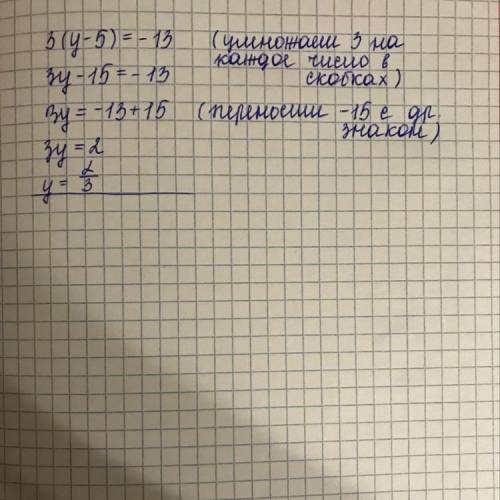 3(y-5)=-13 (умножаем 3 на
каждое число в
3y-15=-13 скобках)
3y=-13+15 (переносим -15 с др.
знаком)
3y=2
y=2/3